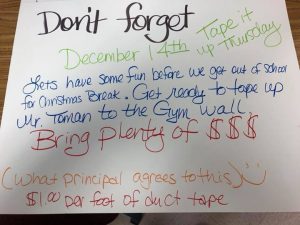 Don't forget
December 14th Tape it
up Thursday
Lets have some fun before we get out of school
for Christmas Break. Get ready to tape up
Mr. Toman to the Gym Wall.
Bring plenty of $$$
(What principal agrees to this)
$1.00 per foot of duct tape